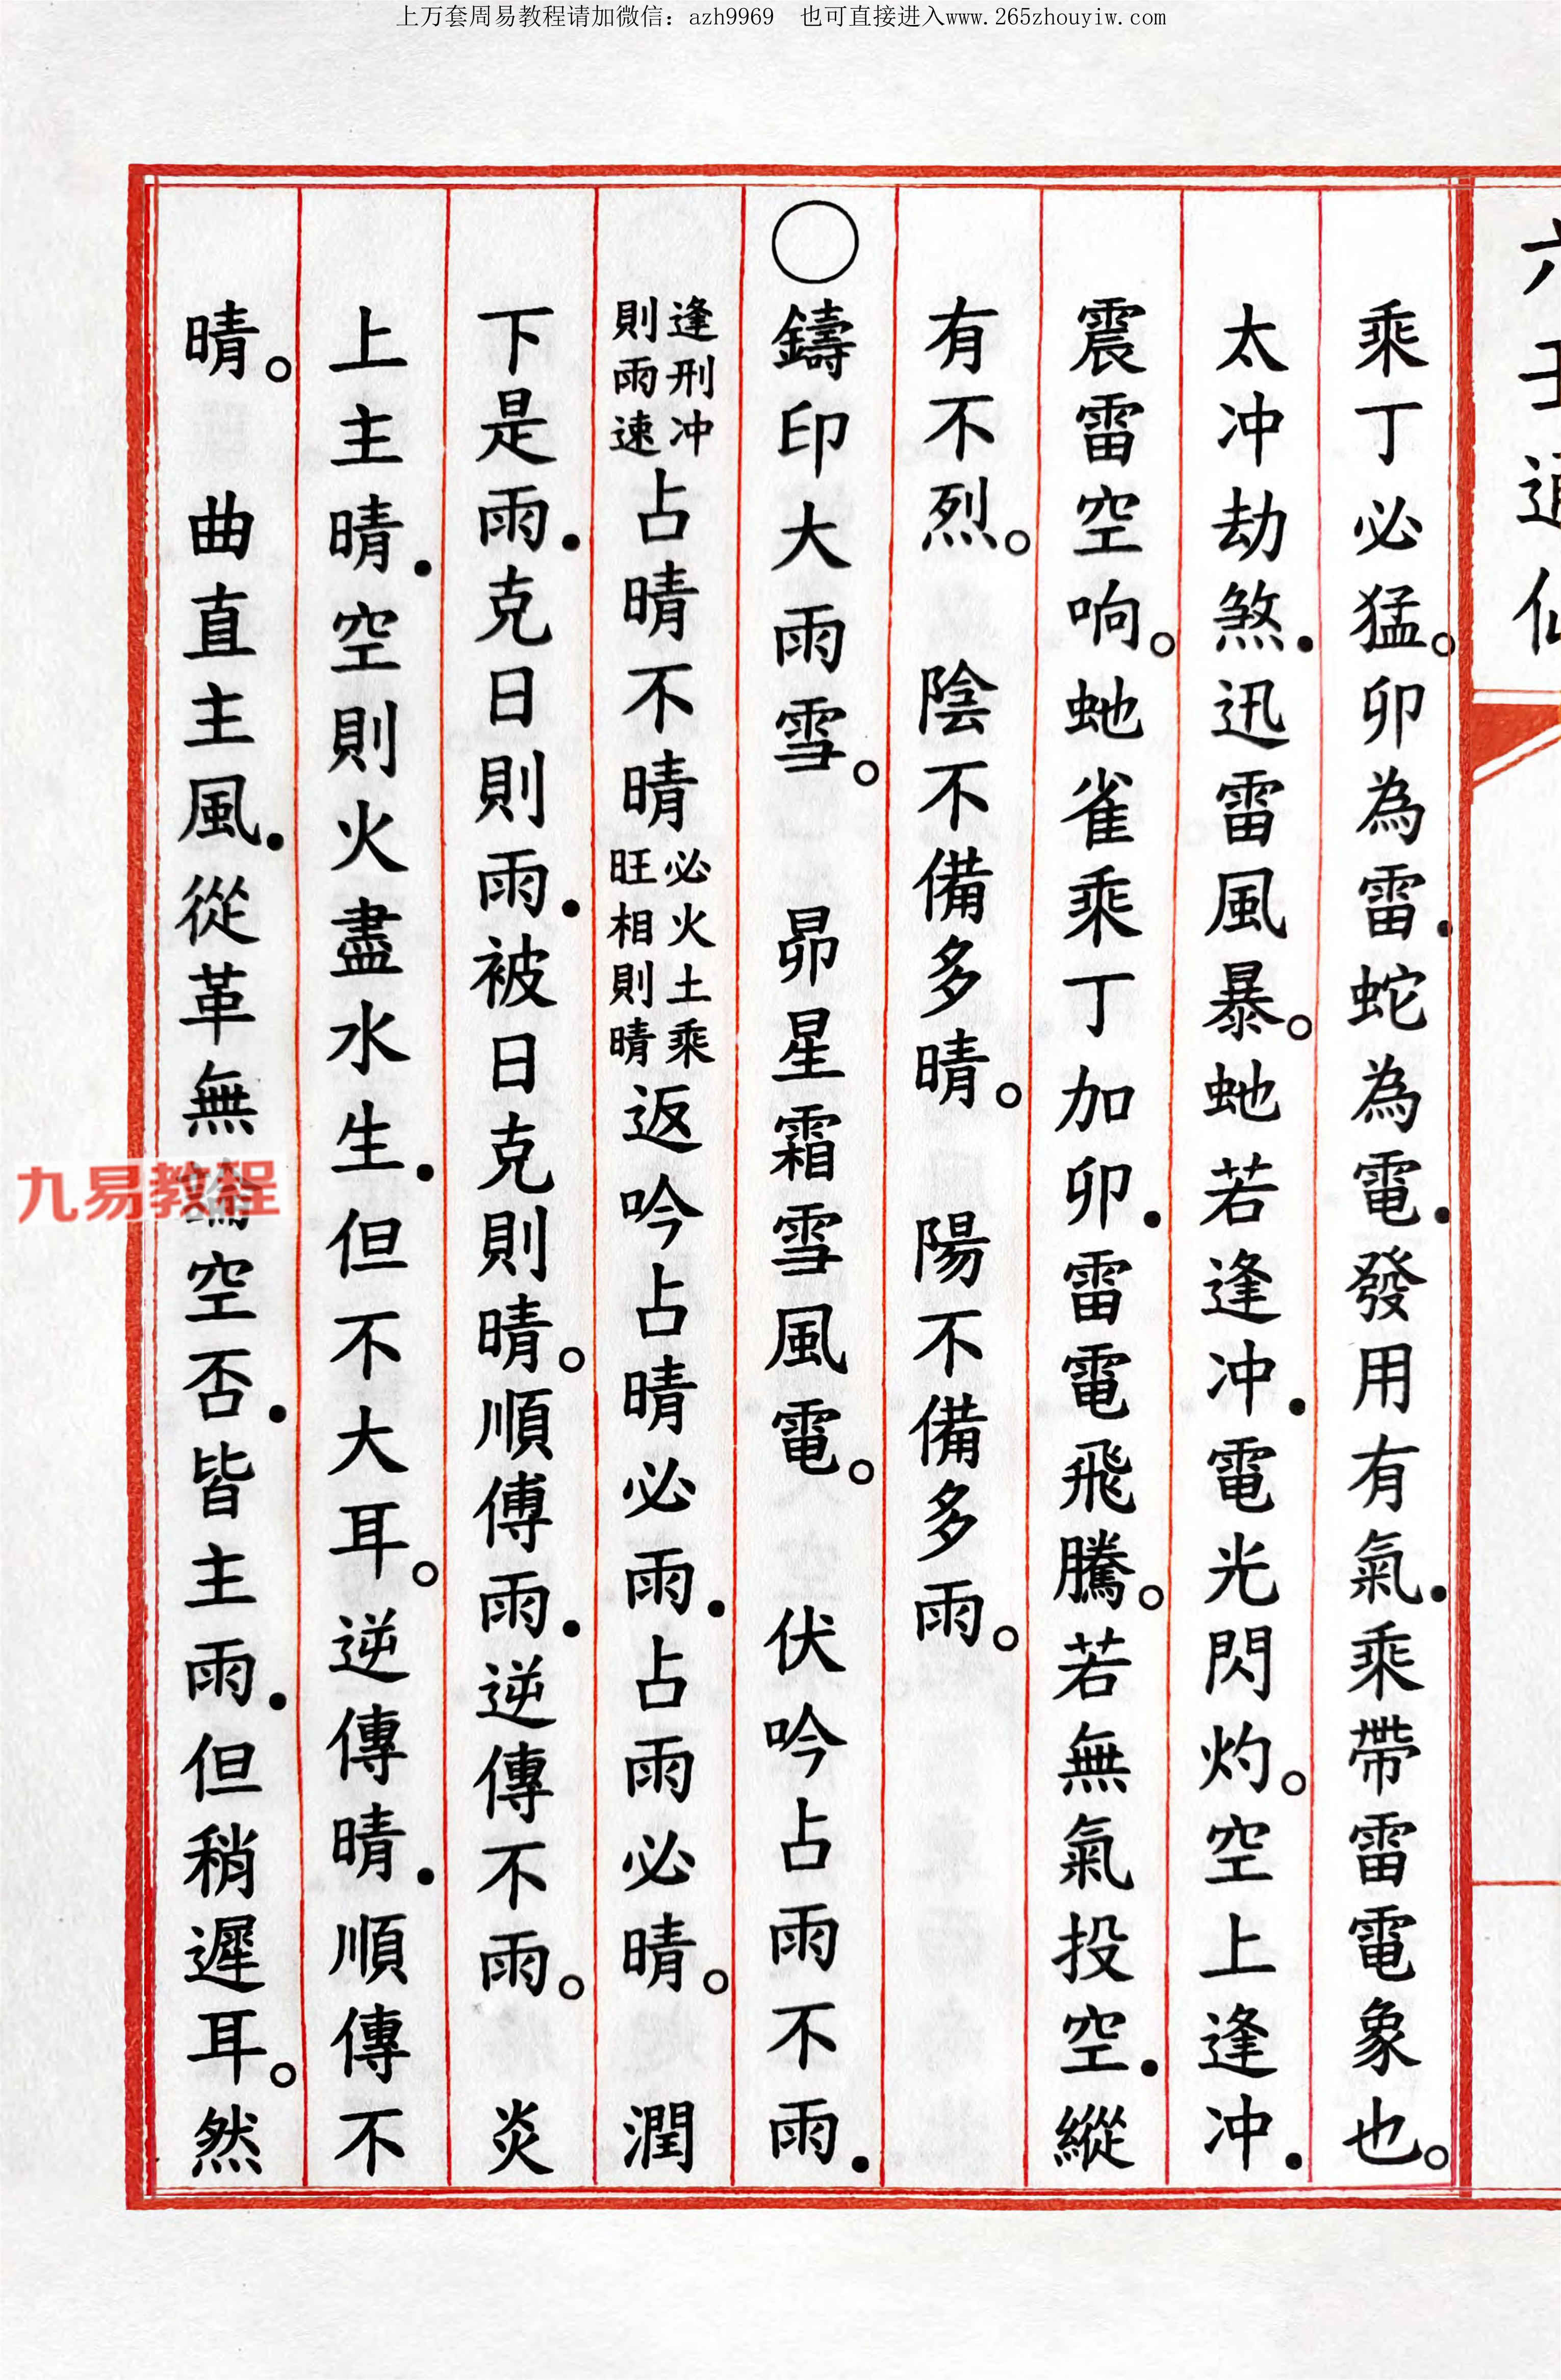 上万套周易教程请加微信：azh9969 也可直接进入www.265zhouyiw.com
六壬通仙
乘丁必猛。卯為雷．蛇為電．發用有氣．乘帶雷電象也。
太冲劫煞．迅雷風暴。虵若逢冲．電光閃灼。空上逢冲．
震雷空响。虵雀乘丁加卯．雷電飛騰。若無氣投空．縱
有不烈。 陰不備多晴。 陽不備多雨。
〇鑄印大雨雪。 昴星霜雪風電。 伏吟占雨不雨．
逢刑冲則雨速占晴不晴必火土乘旺相則晴返吟占晴必雨．占雨必晴。 潤
下是雨．克日則雨．被日克則晴。順傳雨．逆傳不雨。 炎
上主晴．空則火盡水生．但不大耳。逆傳晴．順傳不
晴。 曲直主風．從革無論空否．皆主雨．但稍遲耳。然
九易教程